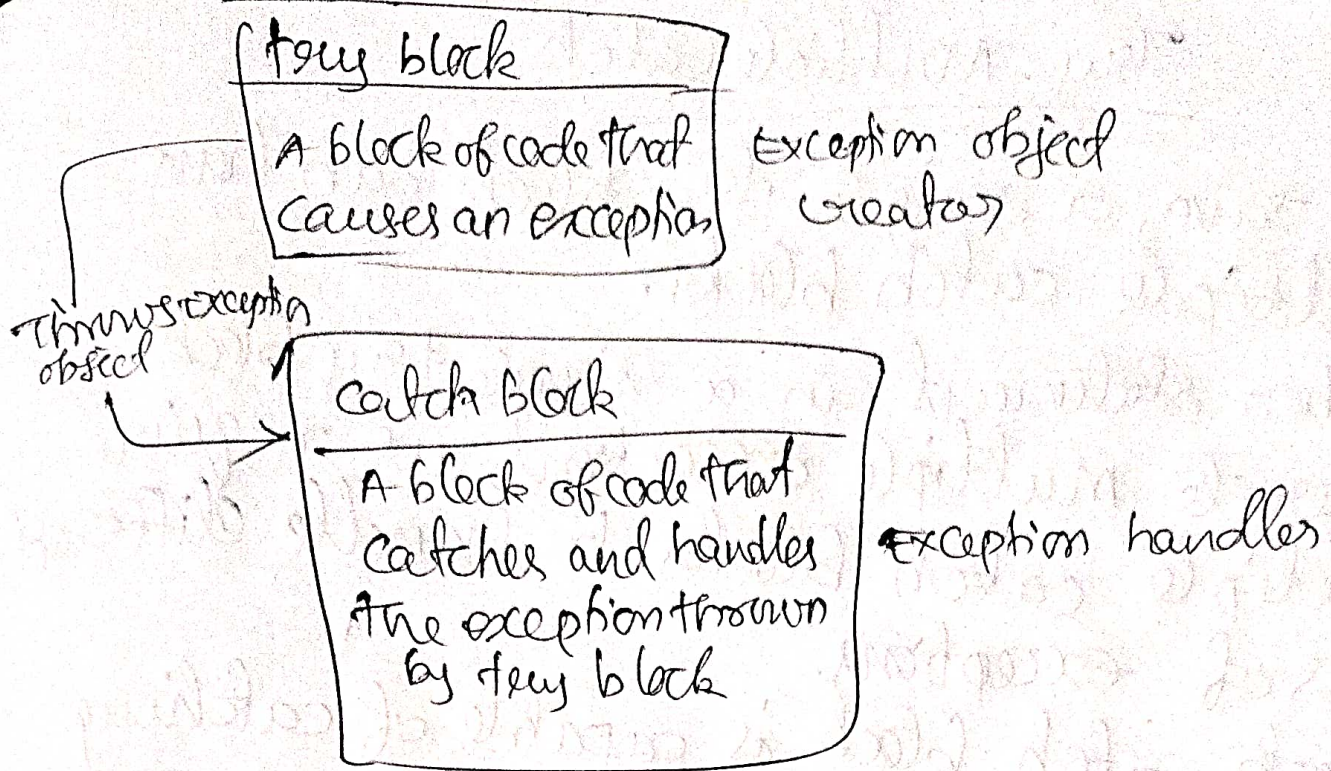 try block
A block of code that
causes an exception
Exception object
creator
Throws exception
object
catch block
A block of code that
catches and handles
the exception thrown
by try block
Exception handler